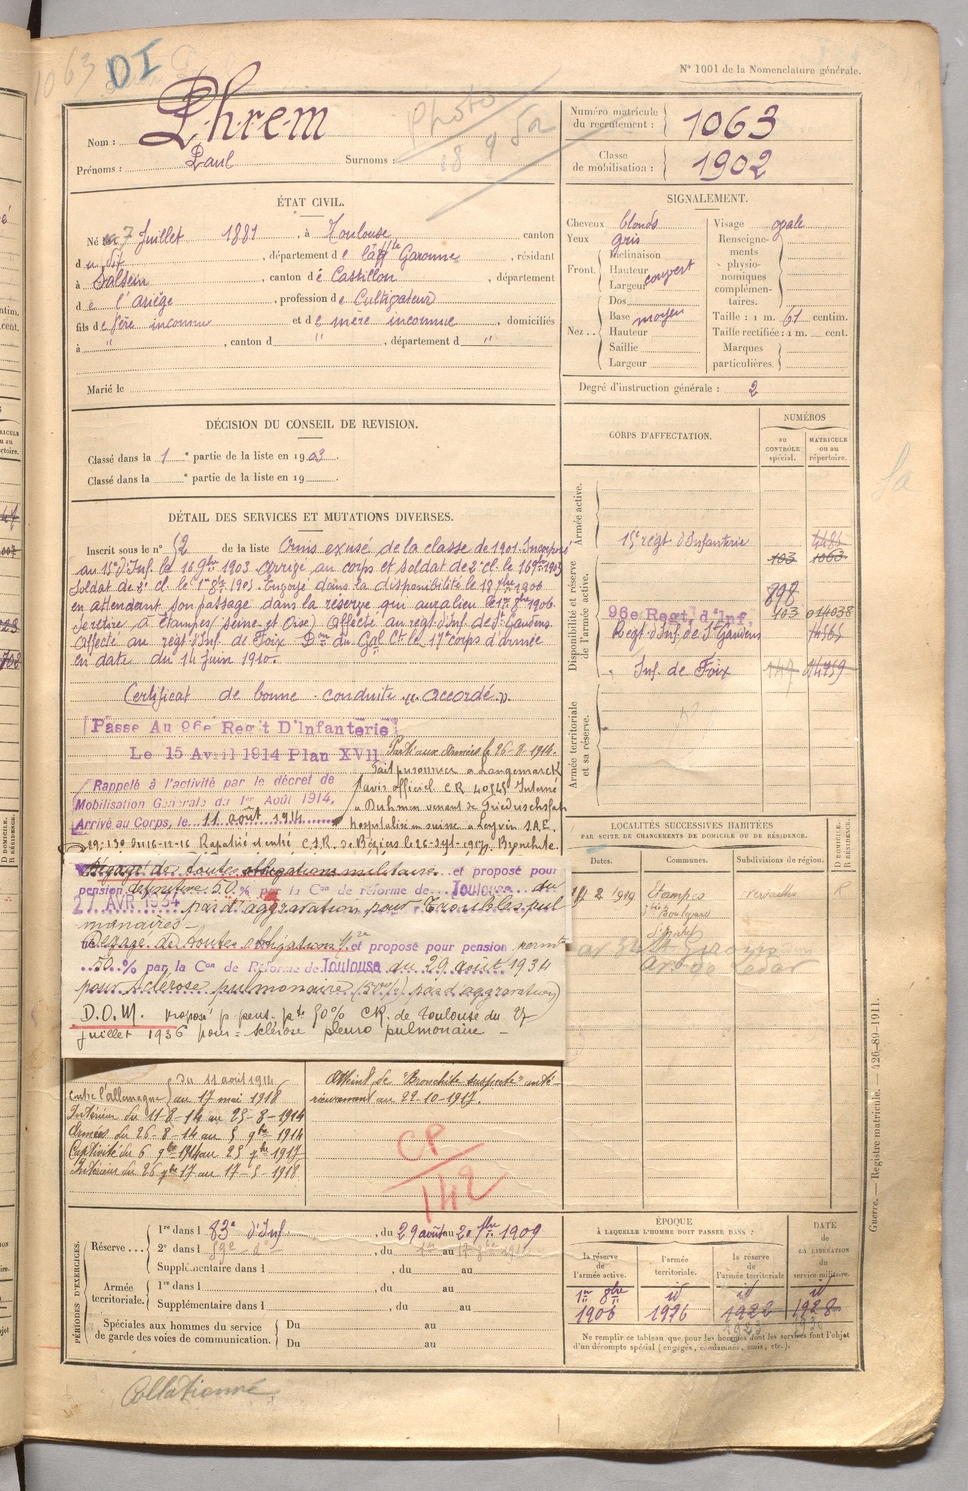 1063 DI
N° 1001 de la Nomenclature générale.
Nom : Phrem
Prénoms : Paul Surnoms :
Photo
18 9 52
Numéro matricule du recrutement : 1063
Classe de mobilisation : 1902
ÉTAT CIVIL.
Né le 7 Juillet 1881, à Toulouse, canton
d u dit, département d e la Hte Garonne, résidant
à Salsein, canton d e Castillon, département
d e l'Ariège, profession d e Cultivateur
fils d e père inconnu et d e mère inconnue, domiciliés
à " , canton d " , département d "
Marié le
SIGNALEMENT.
Cheveux blonds
Yeux gris
Front
Inclinaison
Hauteur couvert
Largeur
Nez
Dos
Base moyen
Hauteur
Saillie
Largeur
Visage ovale
Renseignements physionomiques complémentaires.
Taille : 1 m. 61 centim.
Taille rectifiée : 1 m. cent.
Marques particulières.
Degré d'instruction générale : 2
DÉCISION DU CONSEIL DE REVISION.
Classé dans la 1e partie de la liste en 1903.
Classé dans la e partie de la liste en 19 .
CORPS D'AFFECTATION.
NUMÉROS
AU CONTRÔLE spécial.
MATRICULE ou au répertoire.
Armée active.
15e régt d'Infanterie
103 1063
Disponibilité et réserve de l'armée active.
898
96e Regt. d'Inf. 403 014038
Regt d'Inf. de St Gaudens
Inf. de Foix 147 14759
Armée territoriale et sa réserve.
DÉTAIL DES SERVICES ET MUTATIONS DIVERSES.
Inscrit sous le n° 52 de la liste Omis excusé de la classe de 1901. Incorporé
au 15e d'Inf. le 16 9bre 1903. Arrivé au corps et soldat de 2e cl. le 16 9bre 1903
Soldat de 1e cl. le 1er 8bre 1905. Envoyé dans la disponibilité le 18 7bre 1906
en attendant son passage dans la réserve qui aura lieu le 1er 8bre 1906.
Se retire à Etampes (Seine et Oise) Affecté au regt d'Inf. de St Gaudens.
Affecté au regt d'Inf. de Foix Don du Gal Ct le 17e corps d'armée
en date du 14 Juin 1910.
Certificat de bonne conduite "accordé".
Passe Au 96e Regt D'Infanterie
Le 15 Avril 1914 Plan XVII
Parti aux armées le 26-8-1914.
Fait prisonnier à Langemarck
Rappelé à l'activité par le décret de
Mobilisation Générale du 1er Août 1914.
Arrivé au Corps, le 11 août 1914
avis officiel C.R. 40545 Interné
à Duhmen venant de Friedrichsfeh
hospitalisé en suisse à Leysin S.A.E.
Rapatrié et entré C.S.R. de Béziers le 26-Sept-1917. Bronchite.
Dégagé de toutes obligations militaires et proposé pour
pension definitive 50 % par la Con de réforme de Toulouse du
27 AVR 1934 pas d'aggravation pour Troubles pul
monaires
Dégagé de toutes obligations Mres et proposé pour pension permte
50 % par la Con de Réforme de Toulouse du 29 août 1934
pour sclérose pulmonaire (50% pas d'aggravation)
D.O.M. proposé p. pens. pte 50% CR. de Toulouse du 27
juillet 1936 pour : sclérose pleuro pulmonaire
Contre l'Allemagne du 11 août 1914 au 17 mai 1918
Intérieur du 11-8-14 au 25-8-1914
Armées du 26-8-14 au 5 9bre 1914
Captivité du 6 9bre 1914 au 25 9bre 1917
Intérieur du 26 9bre 17 au 17-5-1918
Atteint de "Bronchite suspecte" anté
rieurement au 22-10-1917.
CP
142
LOCALITÉS SUCCESSIVES HABITÉES
PAR SUITE DE CHANGEMENTS DE DOMICILE OU DE RÉSIDENCE.
Dates. Communes. Subdivisions de région. D DOMICILE. R RÉSIDENCE.
2 1909 Etampes Versailles R
PÉRIODES D'EXERCICES.
Réserve...
1re dans l 83e d'Inf., du 29 août au 20 7bre 1909
2e dans l , du au
Supplémentaire dans l , du au
Armée territoriale.
1re dans l , du au
Supplémentaire dans l , du au
Spéciales aux hommes du service de garde des voies de communication.
Du au
Du au
ÉPOQUE
À LAQUELLE L'HOMME DOIT PASSER DANS :
la réserve de l'armée active.
l'armée territoriale.
la réserve de l'armée territoriale
DATE DE LA LIBÉRATION du service militaire.
1er 8bre id id id
1906 1916 1922 1928
Ne remplir ce tableau que pour les hommes dont les services font l'objet
d'un décompte spécial (engagés, condamnés, omis, etc.).
Guerre. — Registre matricule. — 426-89-1911.
Collationné